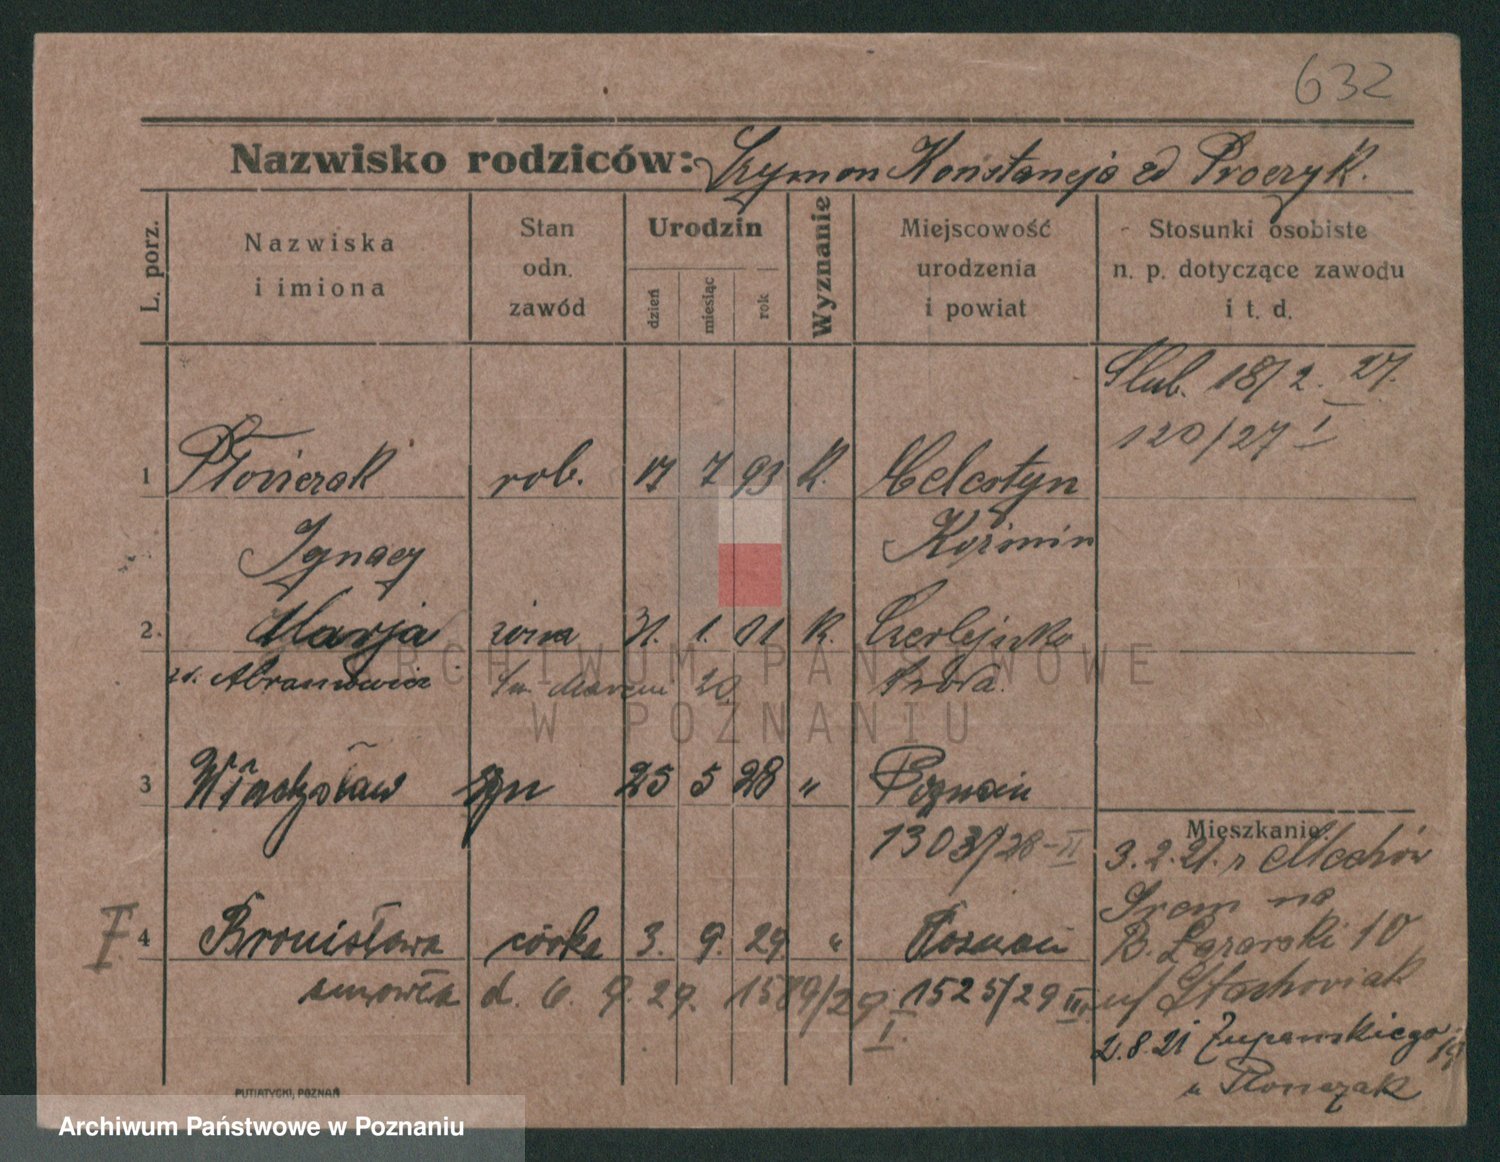 632
Nazwisko rodziców: Szymon Konstancja zd Proczyk.
L. porz.
Nazwiska i imiona
Stan odn. zawód
Urodzin
dzień
miesiąc
rok
Wyznanie
Miejscowość urodzenia i powiat
Stosunki osobiste n. p. dotyczące zawodu i t. d.
Ślub. 18/2. 27.
120/27 I
1 Płonczak rob. 17 7 93 K. Celestyn
Ignacy Koźmin
2. Marja żona 31. 1. 01 K. Czerlejnko
zd. Abramowicz Św. Marcin 20 Środa.
3 Władysław syn 25 5 28 " Poznań
1303/28-II
Mieszkanie:
3.2.21. z Mechów
Śrem na
I. 4 Bronisława córka 3. 9. 29 " Poznań
B. Łazarski 10
zmarła d. 6. 9. 29. 1589/29 I. 1525/29 II
u/ Stachowiak
2.8.21 Żupańskiego
u Płonczak
PUTIATYCKI, POZNAŃ
ARCHIWUM PAŃSTWOWE
W POZNANIU
Archiwum Państwowe w Poznaniu